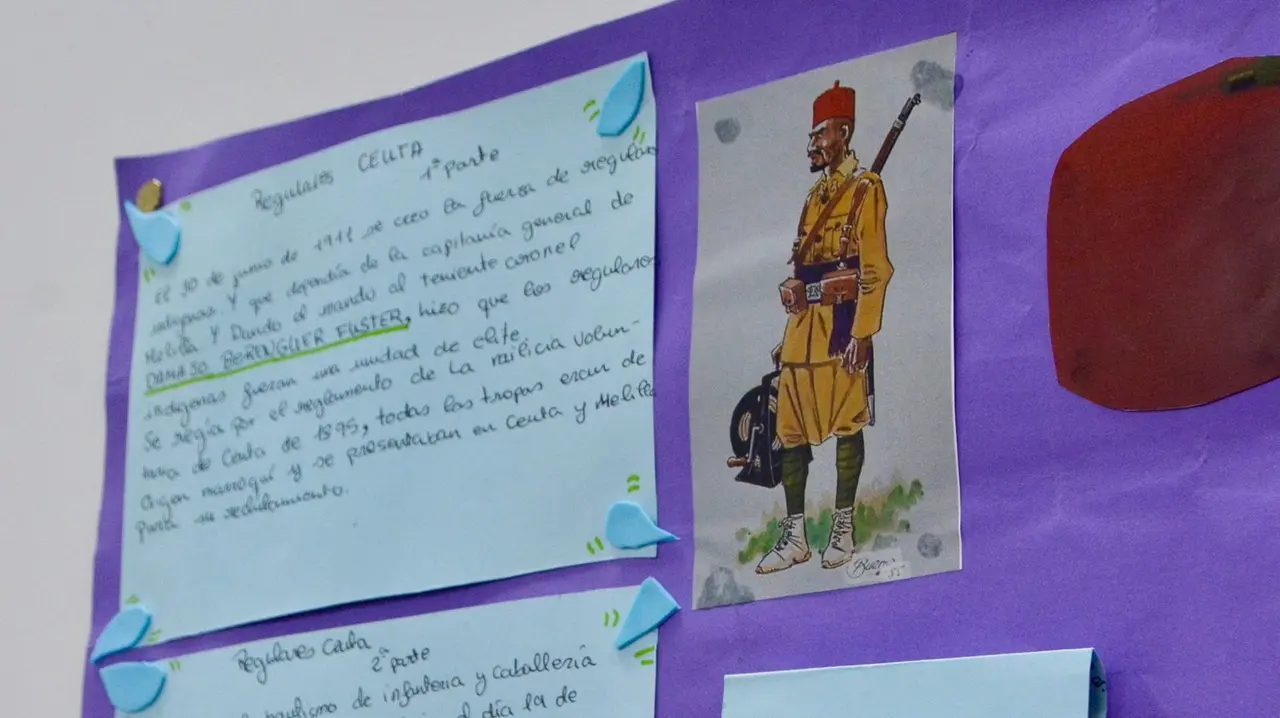 Regulares CEUTA
1ª parte
El 30 de junio de 1911 se creo la fuerza de regulares
indigenas. Y que dependía de la capitanía general de
Melilla Y Dando el mando al teniente coronel
DAMASO BERENGUER FUSTER, hizo que los regulares
indigenas fueran una unidad de elite.
Se regía por el reglamento de la milicia volun-
taria de Ceuta de 1895, todas las tropas eran de
origen marroquí y se presentaban en Ceuta y Melilla
para su reclutamiento.
Regulares Ceuta
2ª parte
bautismo de infanteria y caballería
el día 19 de